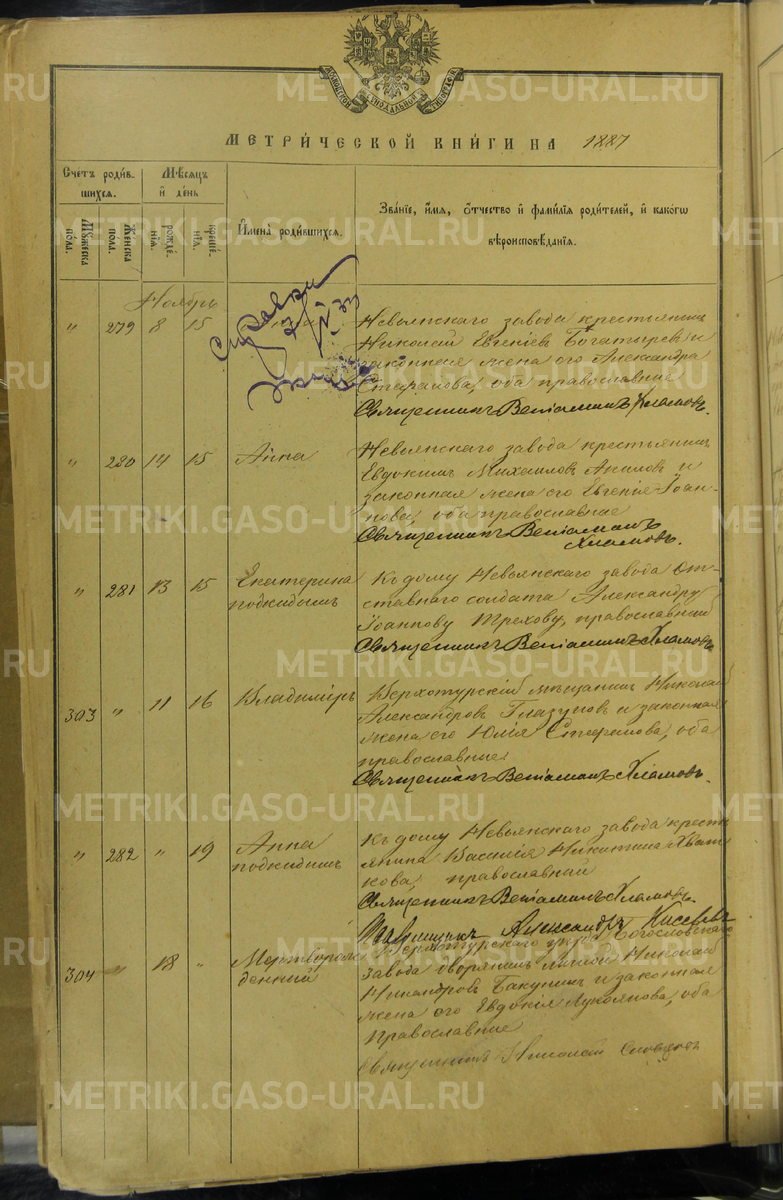 МОСКОВСКОЙ СѴНОДАЛЬНОЙ ТѴПОГРАФІИ
МЕТРИ́ЧЕСКОЙ КНИ́ГИ НА 1887
Счетъ роди́вшихся.
Мѣсяцъ и҆ де́нь
Мꙋжеска по́ла.
Же́нска по́ла.
рожде́нїя.
креще́нїя.
И҆мена̀ роди́вшихся.
Зва́нїе, и҆́мя, ѻ҆́тчество и҆ фами́лїя роди́телей, и҆ како́гѡ
вѣроисповѣ́данїя.
Ноябрь
" 279 8 15 Невьянскаго завода крестьянинъ
Николай Евгеніевъ Богатыревъ и
законная жена его Александра
Стефанова, оба православные
Священникъ Веніаминъ Хламовъ.
" 280 14 15 Анна Невьянскаго завода крестьянинъ
Евдокимъ Михаиловъ и
законная жена его Евгенія Іоан-
нова, оба православные
Священникъ Веніаминъ
Хламовъ.
" 281 13 15 Екатерина подкидышъ Къ дому Невьянскаго завода от-
ставнаго солдата Александру
Іоаннову Трехову, православный
Священникъ Веніаминъ Хламовъ
303 " 11 16 Владиміръ Верхотурскій мѣщанинъ Николай
Александровъ Глазуновъ и законная
жена его Юлія Стефанова, оба
православные
Священникъ Веніаминъ Хламовъ.
" 282 " 19 Анна подкидышъ Къ дому Невьянскаго завода кресть
янина Василія Никитина Хват
кова, православный
Священникъ Веніаминъ Хламовъ.
Александръ Киселевъ
304 " 18 " Мертворож
денный Верхотурскаго уѣзда Богословскаго
завода дворянинъ личный Николай
Никандровъ Бакунинъ и законная
жена его Евдокія Лукоянова, оба
православные
Священникъ Николай
METRIKI.GASO-URAL.RU